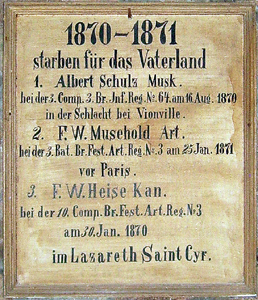 1870-1871
starben für das Vaterland
1. Albert Schulz Musk.
bei der 3. Comp. 3. Br. Inf. Reg. No. 64. am 16. Aug. 1870
in der Schlacht bei Vionville.
2. F. W. Musehold Art.
bei der 3. Bat. Br. Fest. Art. Reg. No. 3 am 25. Jan. 1871
vor Paris.
3. F. W. Heise Kan.
bei der 10. Comp. Br. Fest. Art. Reg. No 3
am 30. Jan. 1870
im Lazareth Saint Cyr.